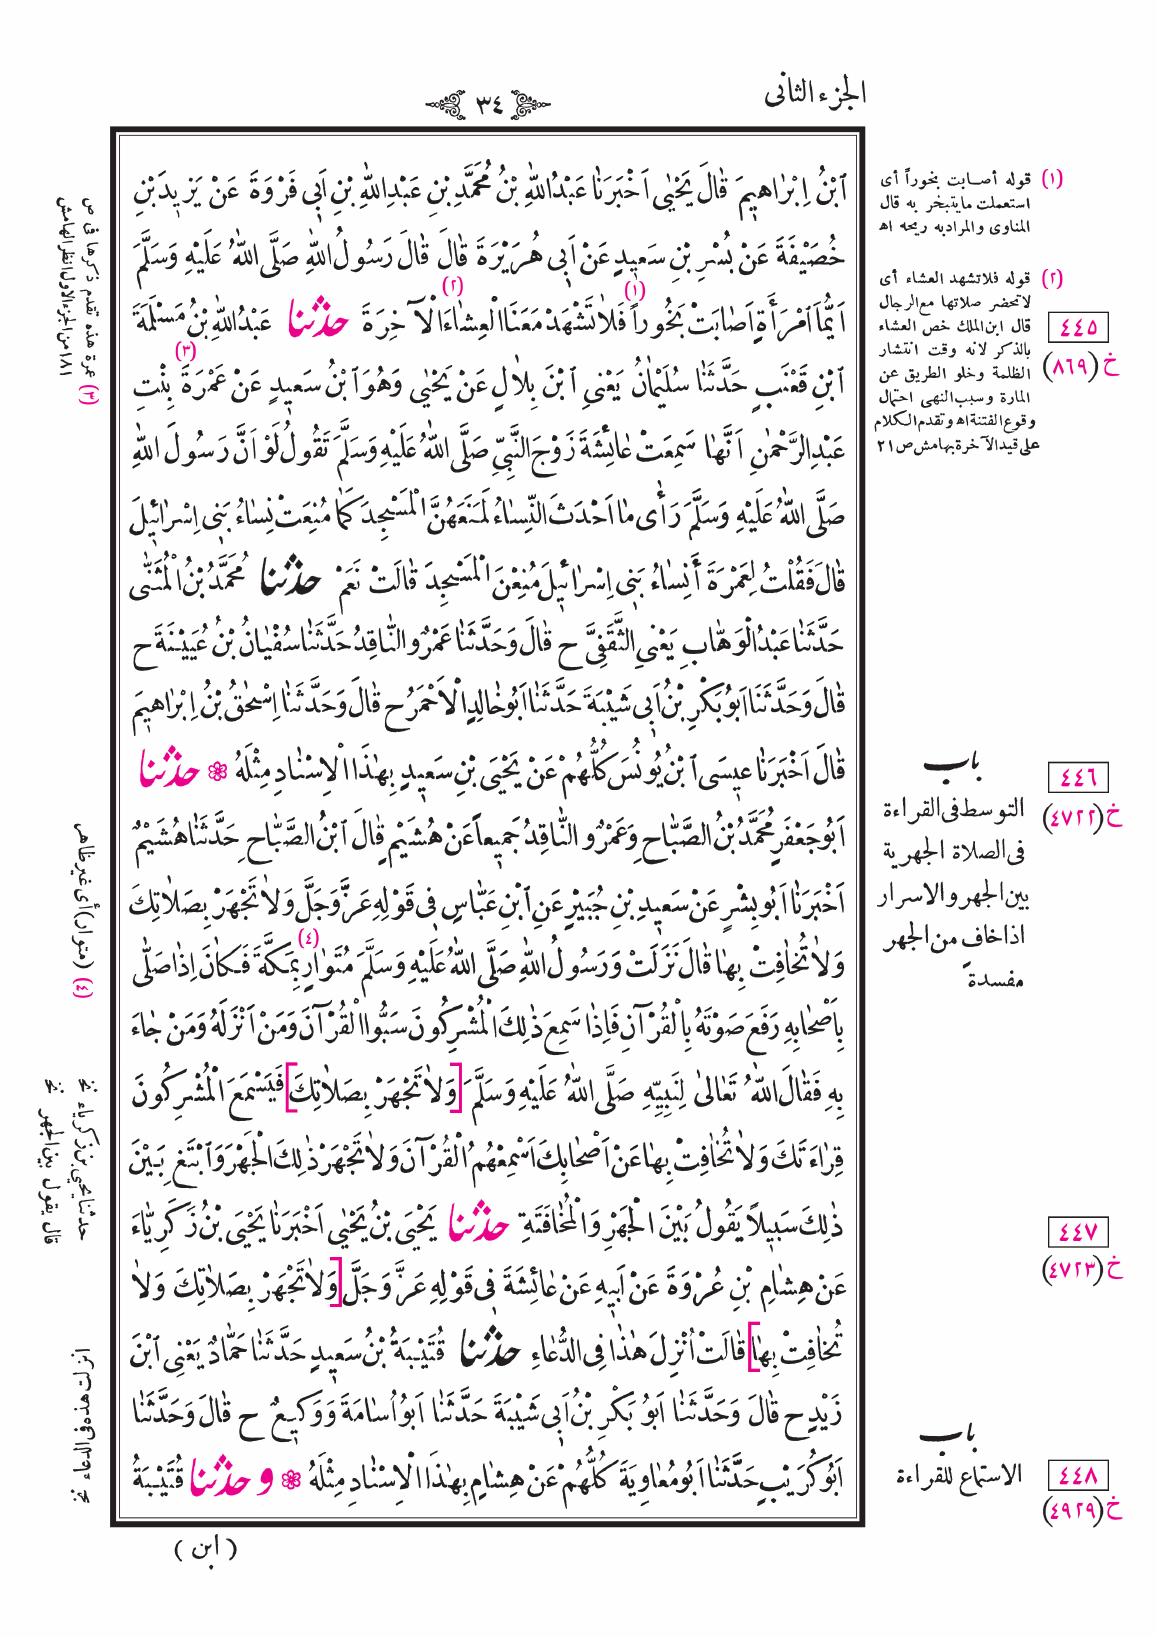 الجزء الثانى
٣٤
اَبْنُ اِبْرَاهِيمَ قَالَ يَحْيٰى اَخْبَرَنَا عَبْدُ اللّٰهِ بْنُ مُحَمَّدِ بْنِ عَبْدِ اللّٰهِ بْنِ اَبِى فَرْوَةَ عَنْ يَزِيدَ بْنِ
خُصَيْفَةَ عَنْ بُسْرِ بْنِ سَعِيدٍ عَنْ اَبِى هُرَيْرَةَ قَالَ قَالَ رَسُولُ اللّٰهِ صَلَّى اللّٰهُ عَلَيْهِ وَسَلَّمَ
اَيُّمَا امْرَأَةٍ اَصَابَتْ بَخُوراً (١) فَلَا تَشْهَدْ مَعَنَا الْعِشَاءَ (٢) الْآخِرَةَ حدثنا عَبْدُ اللّٰهِ بْنُ مَسْلَمَةَ
ابْنِ قَعْنَبٍ حَدَّثَنَا سُلَيْمَانُ يَعْنِى ابْنَ بِلَالٍ عَنْ يَحْيٰى وَهُوَ ابْنُ سَعِيدٍ عَنْ عَمْرَةَ (٣) بِنْتِ
عَبْدِ الرَّحْمٰنِ اَنَّهَا سَمِعَتْ عَائِشَةَ زَوْجَ النَّبِىِّ صَلَّى اللّٰهُ عَلَيْهِ وَسَلَّمَ تَقُولُ لَوْ اَنَّ رَسُولَ اللّٰهِ
صَلَّى اللّٰهُ عَلَيْهِ وَسَلَّمَ رَأٰى مَا اَحْدَثَ النِّسَاءُ لَمَنَعَهُنَّ الْمَسْجِدَ كَمَا مُنِعَتْ نِسَاءُ بَنِى اِسْرَائِيلَ
قَالَ فَقُلْتُ لِعَمْرَةَ أَنِسَاءُ بَنِى اِسْرَائِيلَ مُنِعْنَ الْمَسْجِدَ قَالَتْ نَعَمْ حدثنا مُحَمَّدُ بْنُ الْمُثَنّٰى
حَدَّثَنَا عَبْدُ الْوَهَّابِ يَعْنِى الثَّقَفِىَّ ح قَالَ وَحَدَّثَنَا عَمْرٌو النَّاقِدُ حَدَّثَنَا سُفْيَانُ بْنُ عُيَيْنَةَ ح
قَالَ وَحَدَّثَنَا اَبُو بَكْرِ بْنُ اَبِى شَيْبَةَ حَدَّثَنَا اَبُو خَالِدٍ الْاَحْمَرُ ح قَالَ وَحَدَّثَنَا اِسْحٰقُ بْنُ اِبْرَاهِيمَ
قَالَ اَخْبَرَنَا عِيسَى ابْنُ يُونُسَ كُلُّهُمْ عَنْ يَحْيَى بْنِ سَعِيدٍ بِهٰذَا الْاِسْنَادِ مِثْلَهُ ❀ حدثنا
اَبُو جَعْفَرٍ مُحَمَّدُ بْنُ الصَّبَّاحِ وَعَمْرٌو النَّاقِدُ جَمِيعاً عَنْ هُشَيْمٍ قَالَ ابْنُ الصَّبَّاحِ حَدَّثَنَا هُشَيْمٌ
اَخْبَرَنَا اَبُو بِشْرٍ عَنْ سَعِيدِ بْنِ جُبَيْرٍ عَنِ ابْنِ عَبَّاسٍ فِى قَوْلِهِ عَزَّ وَجَلَّ وَلَا تَجْهَرْ بِصَلَاتِكَ
وَلَا تُخَافِتْ بِهَا قَالَ نَزَلَتْ وَرَسُولُ اللّٰهِ صَلَّى اللّٰهُ عَلَيْهِ وَسَلَّمَ مُتَوَارٍ (٤) بِمَكَّةَ فَكَانَ اِذَا صَلّٰى
بِاَصْحَابِهِ رَفَعَ صَوْتَهُ بِالْقُرْآنِ فَاِذَا سَمِعَ ذٰلِكَ الْمُشْرِكُونَ سَبُّوا الْقُرْآنَ وَمَنْ اَنْزَلَهُ وَمَنْ جَاءَ
بِهِ فَقَالَ اللّٰهُ تَعَالٰى لِنَبِيِّهِ صَلَّى اللّٰهُ عَلَيْهِ وَسَلَّمَ [وَلَا تَجْهَرْ بِصَلَاتِكَ] فَيَسْمَعَ الْمُشْرِكُونَ
قِرَاءَتَكَ وَلَا تُخَافِتْ بِهَا عَنْ اَصْحَابِكَ اَسْمِعْهُمُ الْقُرْآنَ وَلَا تَجْهَرْ ذٰلِكَ الْجَهْرَ وَابْتَغِ بَيْنَ
ذٰلِكَ سَبِيلاً يَقُولُ بَيْنَ الْجَهْرِ وَالْمُخَافَتَةِ حدثنا يَحْيَى بْنُ يَحْيٰى اَخْبَرَنَا يَحْيَى بْنُ زَكَرِيَّاءَ
عَنْ هِشَامِ بْنِ عُرْوَةَ عَنْ اَبِيهِ عَنْ عَائِشَةَ فِى قَوْلِهِ عَزَّ وَجَلَّ [وَلَا تَجْهَرْ بِصَلَاتِكَ وَلَا
تُخَافِتْ بِهَا] قَالَتْ اُنْزِلَ هٰذَا فِى الدُّعَاءِ حدثنا قُتَيْبَةُ بْنُ سَعِيدٍ حَدَّثَنَا حَمَّادٌ يَعْنِى ابْنَ
زَيْدٍ ح قَالَ وَحَدَّثَنَا اَبُو بَكْرِ بْنُ اَبِى شَيْبَةَ حَدَّثَنَا اَبُو اُسَامَةَ وَوَكِيعٌ ح قَالَ وَحَدَّثَنَا
اَبُو كُرَيْبٍ حَدَّثَنَا اَبُو مُعَاوِيَةَ كُلُّهُمْ عَنْ هِشَامٍ بِهٰذَا الْاِسْنَادِ مِثْلَهُ ❀ وحدثنا قُتَيْبَةُ
( ابن )
(١) قوله أصابت بخوراً أى
استعملت ما يتبخر به قال
المناوى والمراد به ريحه اه
(٢) قوله فلا تشهد العشاء أى
لا تحضر صلاتها مع الرجال
قال ابن الملك خص العشاء
بالذكر لانه وقت انتشار
الظلمة وخلو الطريق عن
المارة وسبب النهى احتمال
وقوع الفتنة اه وتقدم الكلام
على قيد الآخرة بهامش ص ٢١
٤٤٥
خ (٨٦٩)
باب
التوسط فى القراءة
فى الصلاة الجهرية
بين الجهر والاسرار
اذا خاف من الجهر
مفسدة
٤٤٦
خ (٤٧٢٢)
٤٤٧
خ (٤٧٢٣)
باب
الاستماع للقراءة
٤٤٨
خ (٤٩٢٩)
(٣) عمرة هذه تقدم ذكرها فى ص
١٨١ من الجزء الاول انظر الهامش
(٤) (متوار) أى غير ظاهر
حدثنا يحيى بن زكرياء نخ
قال يقول بين الجهر نخ
انزلت هذه فى الدعاء نخ